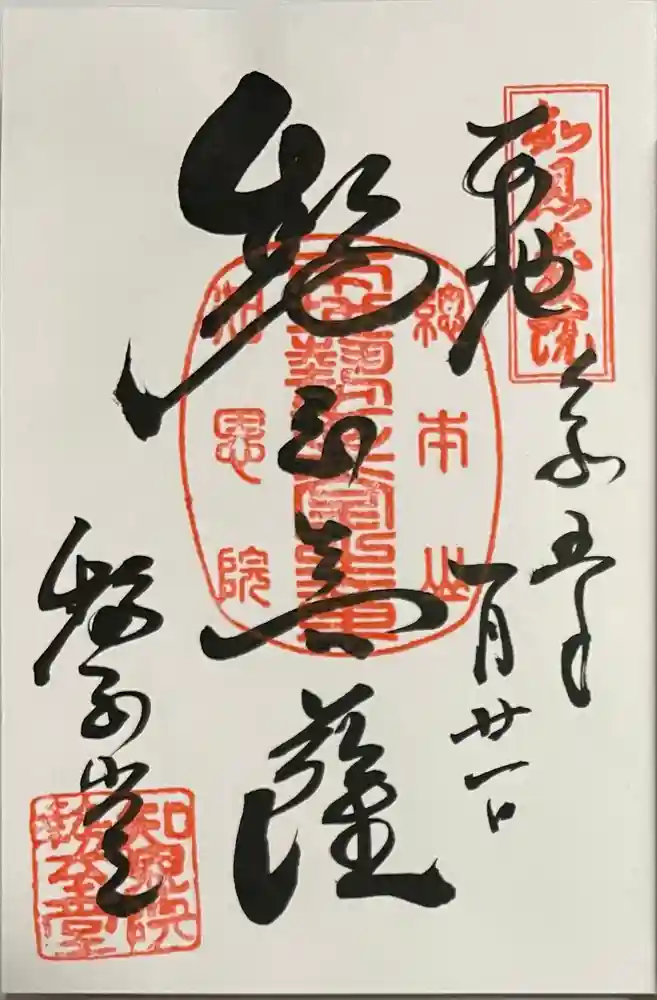 知恩教院
本地
令和五年
一月廿一日
勢至菩薩
總本山
知恩院
勢至堂
知恩院
勢至堂